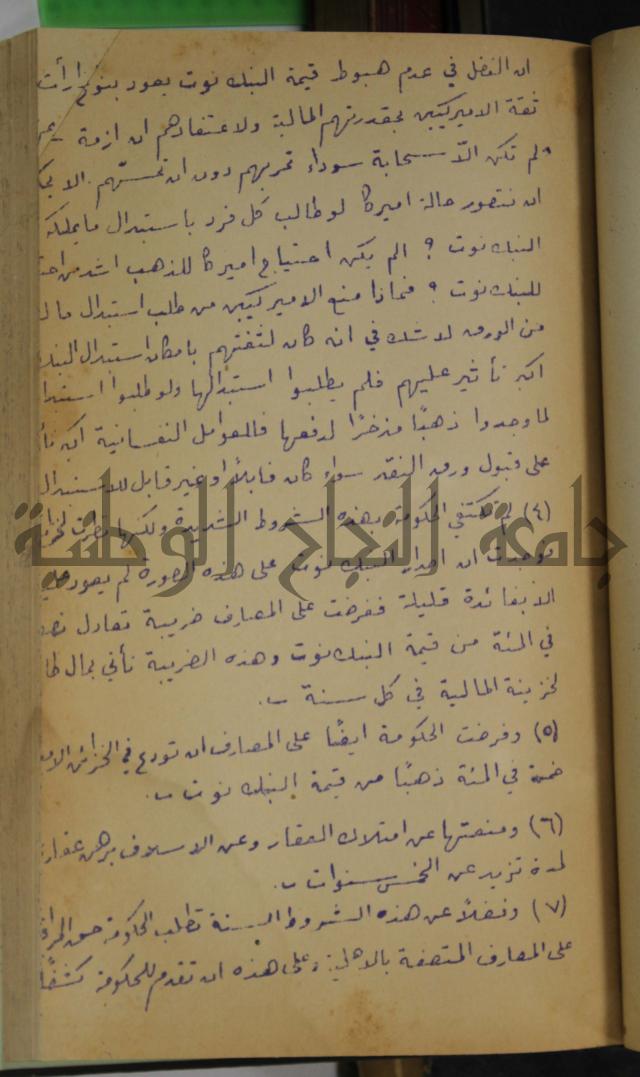 ان الفضل في عدم هبوط قيمة البنك نوت يعود بنوع
ثقة الاميركيين بمقدرتهم المالية ولاعتقادهم ان ازمة
لم تكن الّا سحابة سوداء تمر بهم دون ان تمسّهم. الا
ان نتصور حالة اميركا لو طالب كل فرد باستبدال ما يملكه
البنك نوت ؟ الم يكن احتياج اميركا للذهب اشد من
للبنك نوت ؟ فماذا منع الاميركيين من طلب استبدال ما
من الورق لا شك في انه كان لثقتهم بامكان استبدال
اكبر تأثير عليهم فلم يطلبوا استبدالها ولو طلبوا
لما وجدوا ذهبًا مدّخرًا لدفعها فالعوامل النفسانية اكبر
على قبول ورق النقد سواء كان قابلًا او غير قابل للاستبدال
(٤) لم تكتفي الحكومة بهذه الشروط الشديدة ولكنها
فوجدت ان اصدار البنك نوت على هذه الصورة لم يعود
الا بفائدة قليلة ففرضت على المصارف ضريبة تعادل
في المئة من قيمة البنك نوت وهذه الضريبة تأتي بمال
لخزينة المالية في كل سنة
(٥) وفرضت الحكومة ايضًا على المصارف ان تودع في الخزائن
خمسة في المئة ذهبًا من قيمة البنك نوت
(٦) ومنعتها عن امتلاك العقار وعن الاسلاف برهن
لمدة تزيد عن الخمس سنوات
(٧) وفضلًا عن هذه الشروط الستة تطلب الحكومة حق
على المصارف المتصفة بالاهلية وعلى هذه ان تقدم للحكومة كشفًا
جامعة النجاح الوطنية